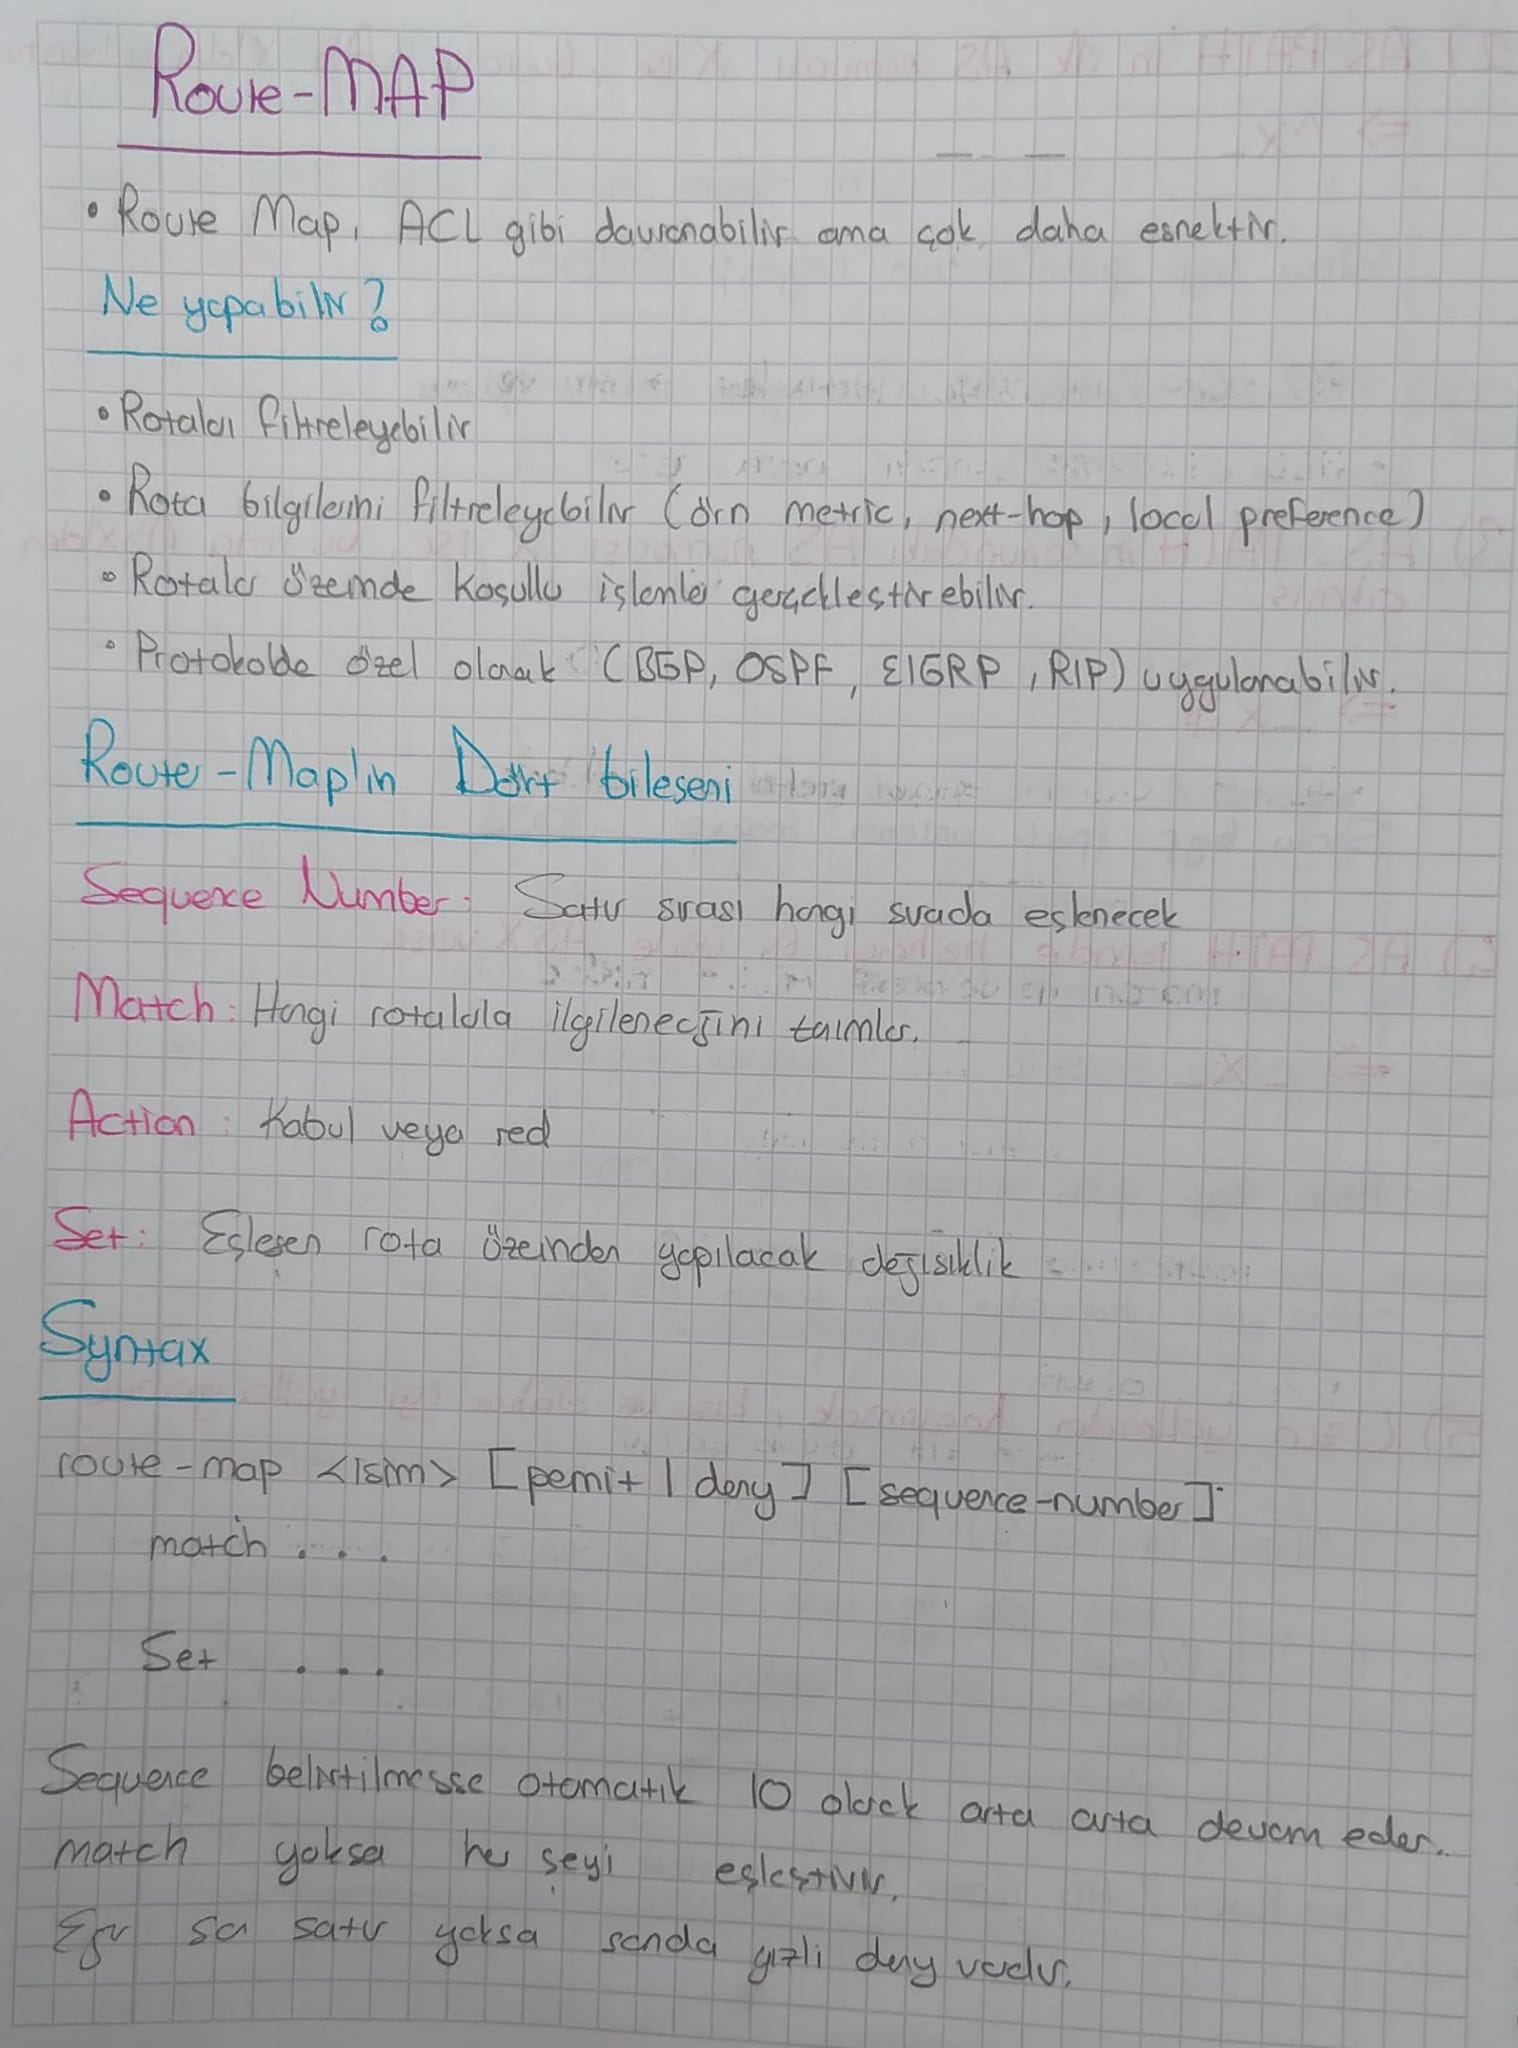 Route-MAP
• Route Map, ACL gibi davranabilir ama çok daha esnektir.
Ne yapabilir?
• Rotaları filtreleyebilir
• Rota bilgilerini filtreleyebilir (örn metric, next-hop, local preference)
• Rotalar üzerinde koşullu işlemler gerçekleştirebilir.
• Protokolde özel olarak (BGP, OSPF, EIGRP, RIP) uygulanabilir.
Route-Map'in Dört bileseni
Sequence Number: Satır sırası hangi sırada eslenecek
Match: Hangi rotalarla ilgileneceğini tanımlar.
Action: Kabul veya red
Set: Eşleşen rota üzerinden yapılacak değişiklik
Syntax
route-map <isim> [permit | deny] [sequence-number]
match ...
Set ...
Sequence belirtilmesse otomatik 10 olarak arta arta devam eder.
match yoksa her şeyi eşleştirir.
Eğer satır yoksa sonda gizli deny vardır.